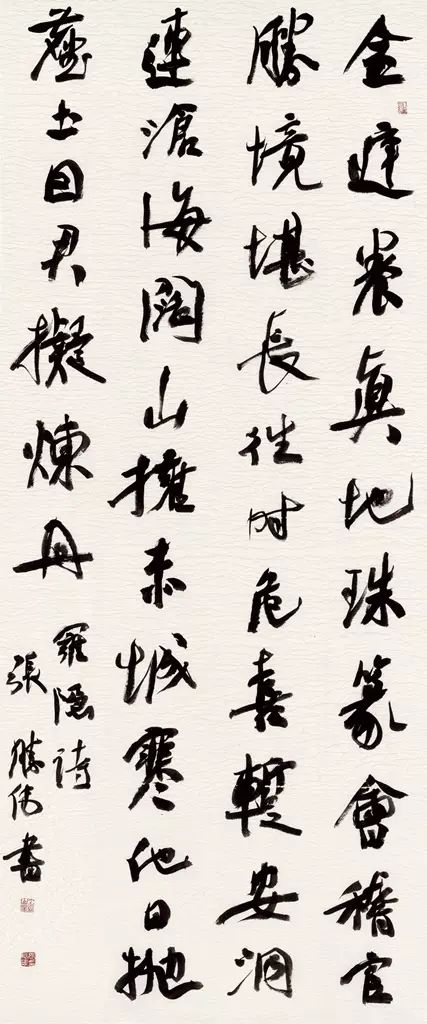 金庭養眞地珠篆會稽官
勝境堪長往时危喜暫安洞
連滄海闊山擁赤城寒他日抛
塵土因君擬煉丹
羅隱詩
張勝伟書